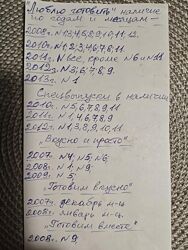 "Люблю готовить" наличие
по годам и месяцам —
2008г. N1,3,4,6,8,9,10,11,12.
2010г. N1,2,3,4,6,7,8,11.
2011г. N все, кроме N6 и N11
2012г. N3,6,7,8,9.
2013г. N1
Спецвыпуски в наличии
2010г. N5,6,7,8,9,11
2011г. N1,4,6,7,8,9
2012г. N1,3,8,9,10,11
"Вкусно и просто"
2007. N4; N5; N6;
2008г. N1; N9;
2009г. N5;
"Готовим вкусно"
2007г. декабрь м-ц
2008г. январь м-ц.
"Готовим вместе"
2008г. N9